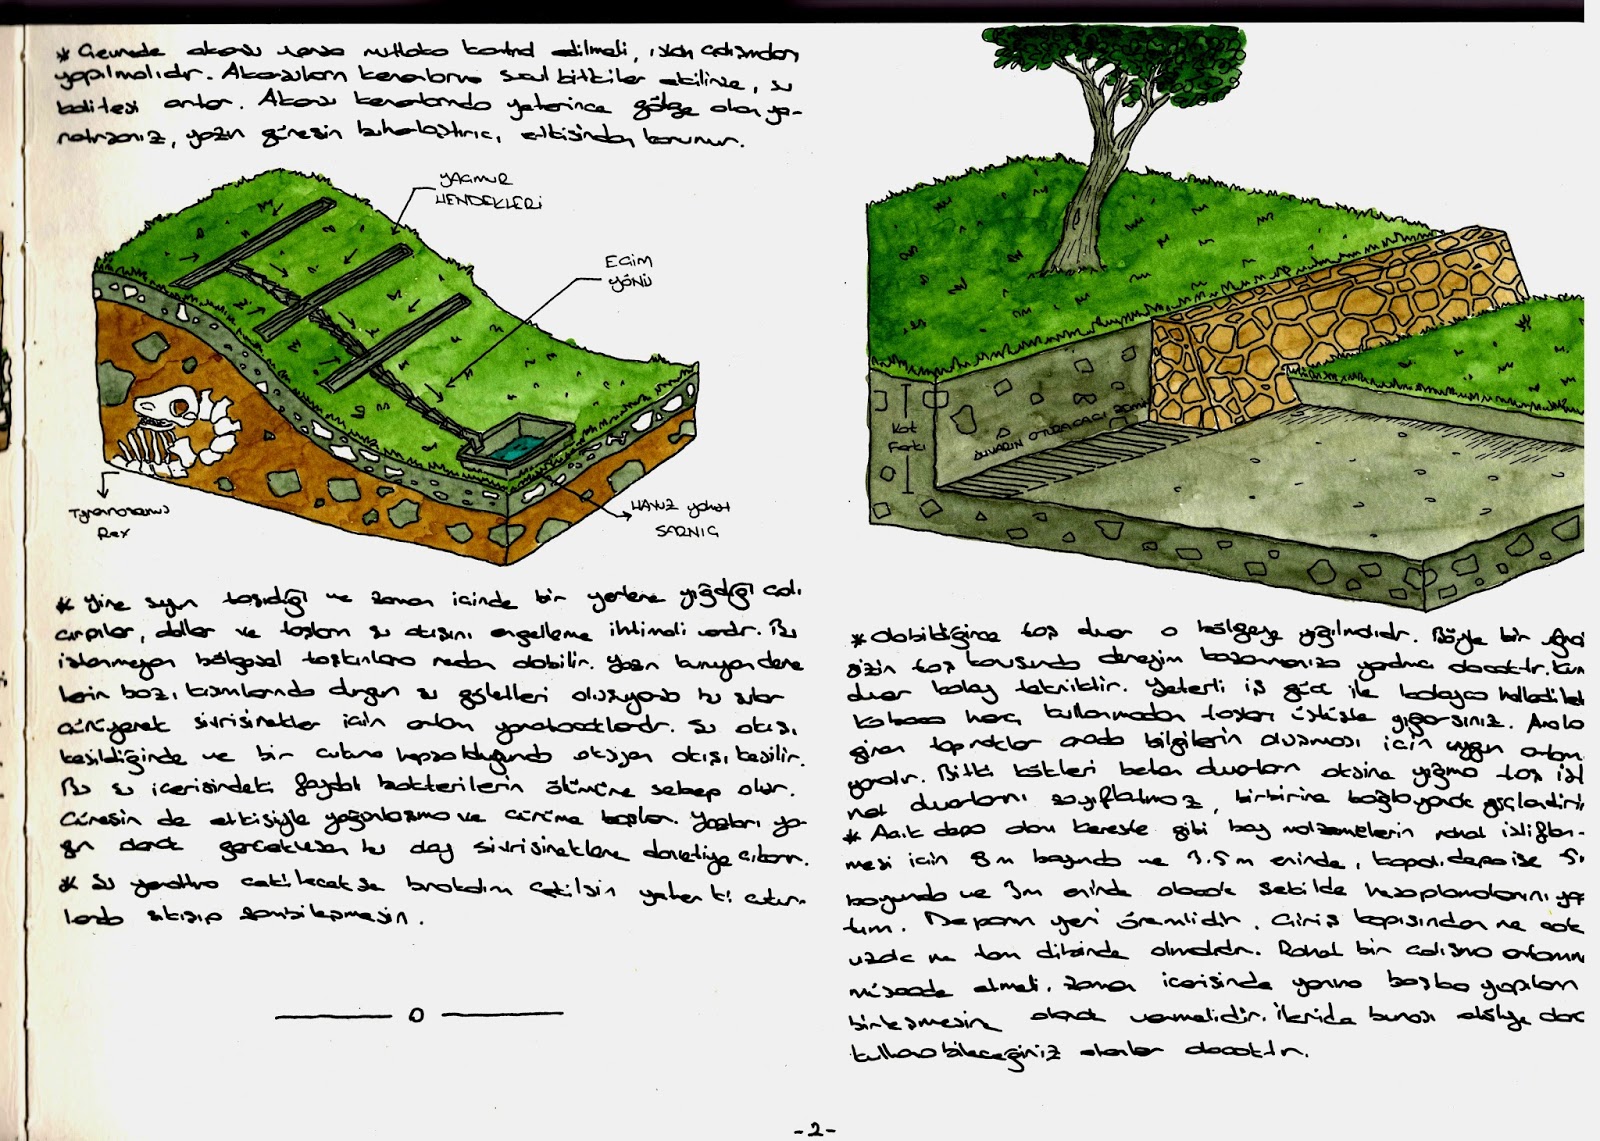 * Çevrede akarsu varsa mutlaka kontrol edilmeli, ıslah çalışmaları
yapılmalıdır. Akarsuların kenarlarına sucul bitkiler ekilirse, su
kalitesi artar. Akarsu kenarlarında yeterince gölge alan ya-
ratırsanız, yazın güneşin buharlaştırıcı etkisinden korunur.
YAĞMUR
HENDEKLERİ
EĞİM
YÖNÜ
Tyranosaurus
Rex
HAVUZ yahut
SARNIÇ
* Yine suyun taşıdığı ve zaman içinde bir yerlere yığdığı çalı
çırpılar, dallar ve taşların su akışını engelleme ihtimali vardır. Bu
istenmeyen bölgesel taşkınlara neden olabilir. Yazın kuruyan dere
lerin bazı kısımlarında durgun su göletleri oluşuyorsa bu sular
çürüyerek sivrisinekler için ortam yaratacaklardır. Su akışı
kesildiğinde ve bir çukura hapsolduğunda oksijen akışı kesilir.
Bu su içerisindeki faydalı bakterilerin ölümüne sebep olur.
Güneşin de etkisiyle yoğunlaşma ve çürüme başlar. Yazları yo-
ğun olarak gerçekleşen bu olay sivrisineklere davetiye çıkarır.
* Su yeraltına çekilecekse bırakalım çekilsin yeter ki çukur-
larda sıkışıp zombileşmesin.
Kot
Farkı
DUVARIN OTURACAĞI ZEMİN
* Olabildiğince taş duvar o bölgeye yığılmalıdır. Böyle bir
sizin taş konusunda deneyim kazanmanıza yardımcı olacaktır. Kuru
duvar kolay tekniktir. Yeterli iş gücü ile kolayca halledilebilir
Kabaca harç kullanmadan taşları üstüste yığarsınız. Arala
giren topraklar orada bitkilerin oluşması için uygun ortam
yaratır. Bitki kökleri beton duvarların aksine yığma taş isti
nat duvarlarını zayıflatmaz, birbirine bağlayarak güçlendirir
* Açık depo alanı kereste gibi boy malzemelerin rahat istiflen-
mesi için 8 m boyunda ve 3.5 m eninde, kapalı depo ise 5
boyunda ve 3 m eninde olacak şekilde hesaplamalarını yap
tım. Deponun yeri önemlidir. Giriş kapısından ne çok
uzak ne tam dibinde olmalıdır. Rahat bir çalışma ortamına
müsaade etmeli, zaman içerisinde yanına başka yapıların
birleşmesine olanak vermelidir. İleride burası atölye olarak
kullanabileceğiniz alanlar olacaktır.
-2-